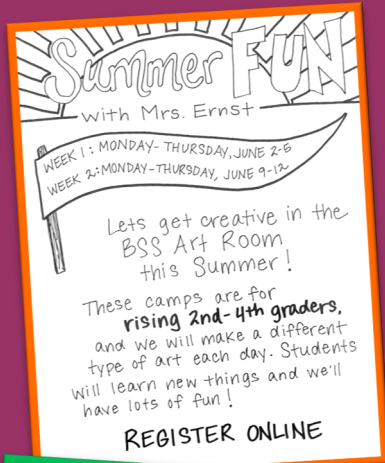 Summer FUN
with Mrs. Ernst
WEEK 1: MONDAY-THURSDAY, JUNE 2-5
WEEK 2: MONDAY-THURSDAY, JUNE 9-12
Lets get creative in the
BSS Art Room
this Summer!
These camps are for
rising 2nd-4th graders,
and we will make a different
type of art each day. Students
will learn new things and we'll
have lots of fun!
REGISTER ONLINE